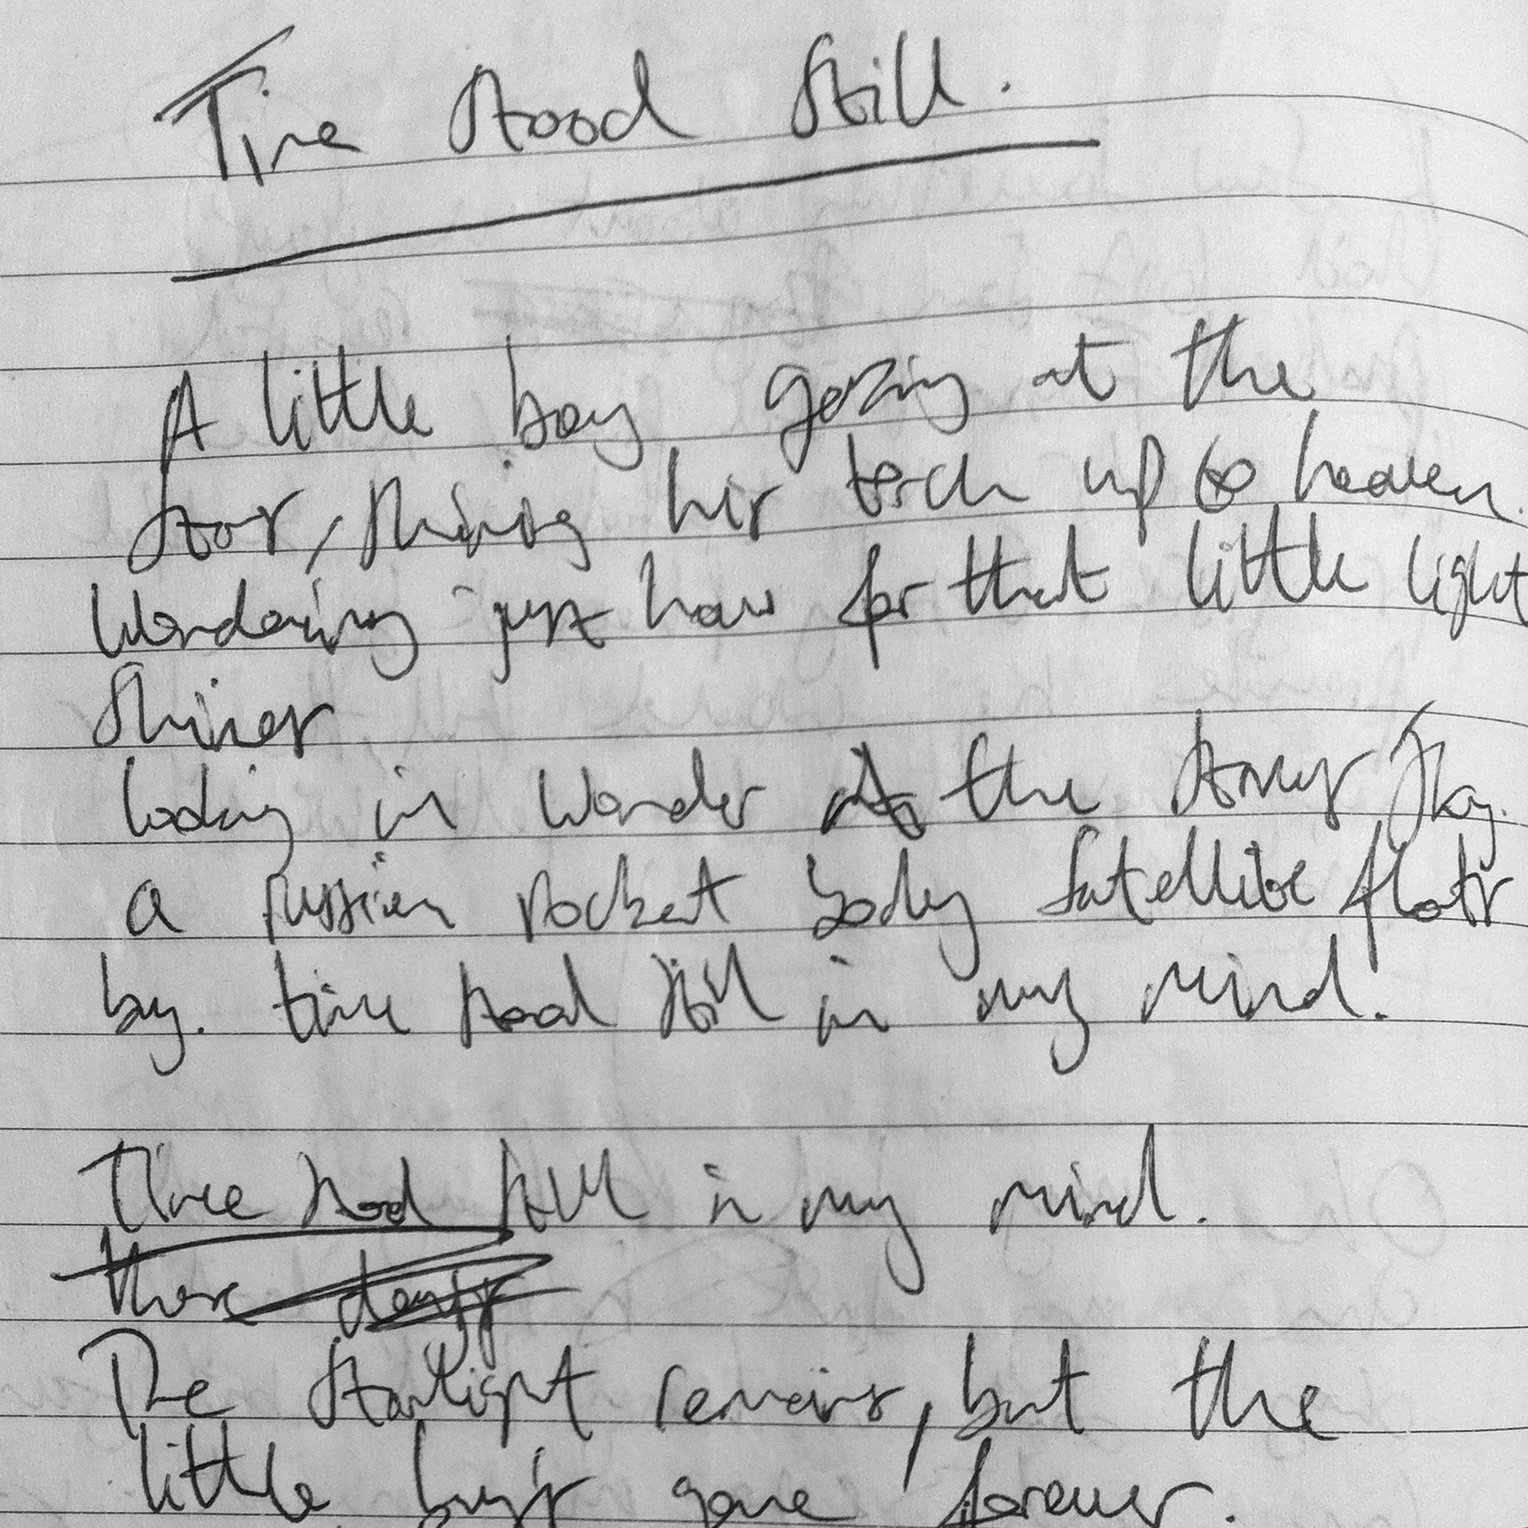 Time Stood Still.
A little boy gazing at the
stars, shining his torch up to heaven.
Wondering just how far that little light
shines
looking in wonder at the starry sky.
a russian rocket body satellite floats
by. time stood still in my mind.
Time stood still in my mind.
these days
The starlight remains, but the
little boy's gone forever.